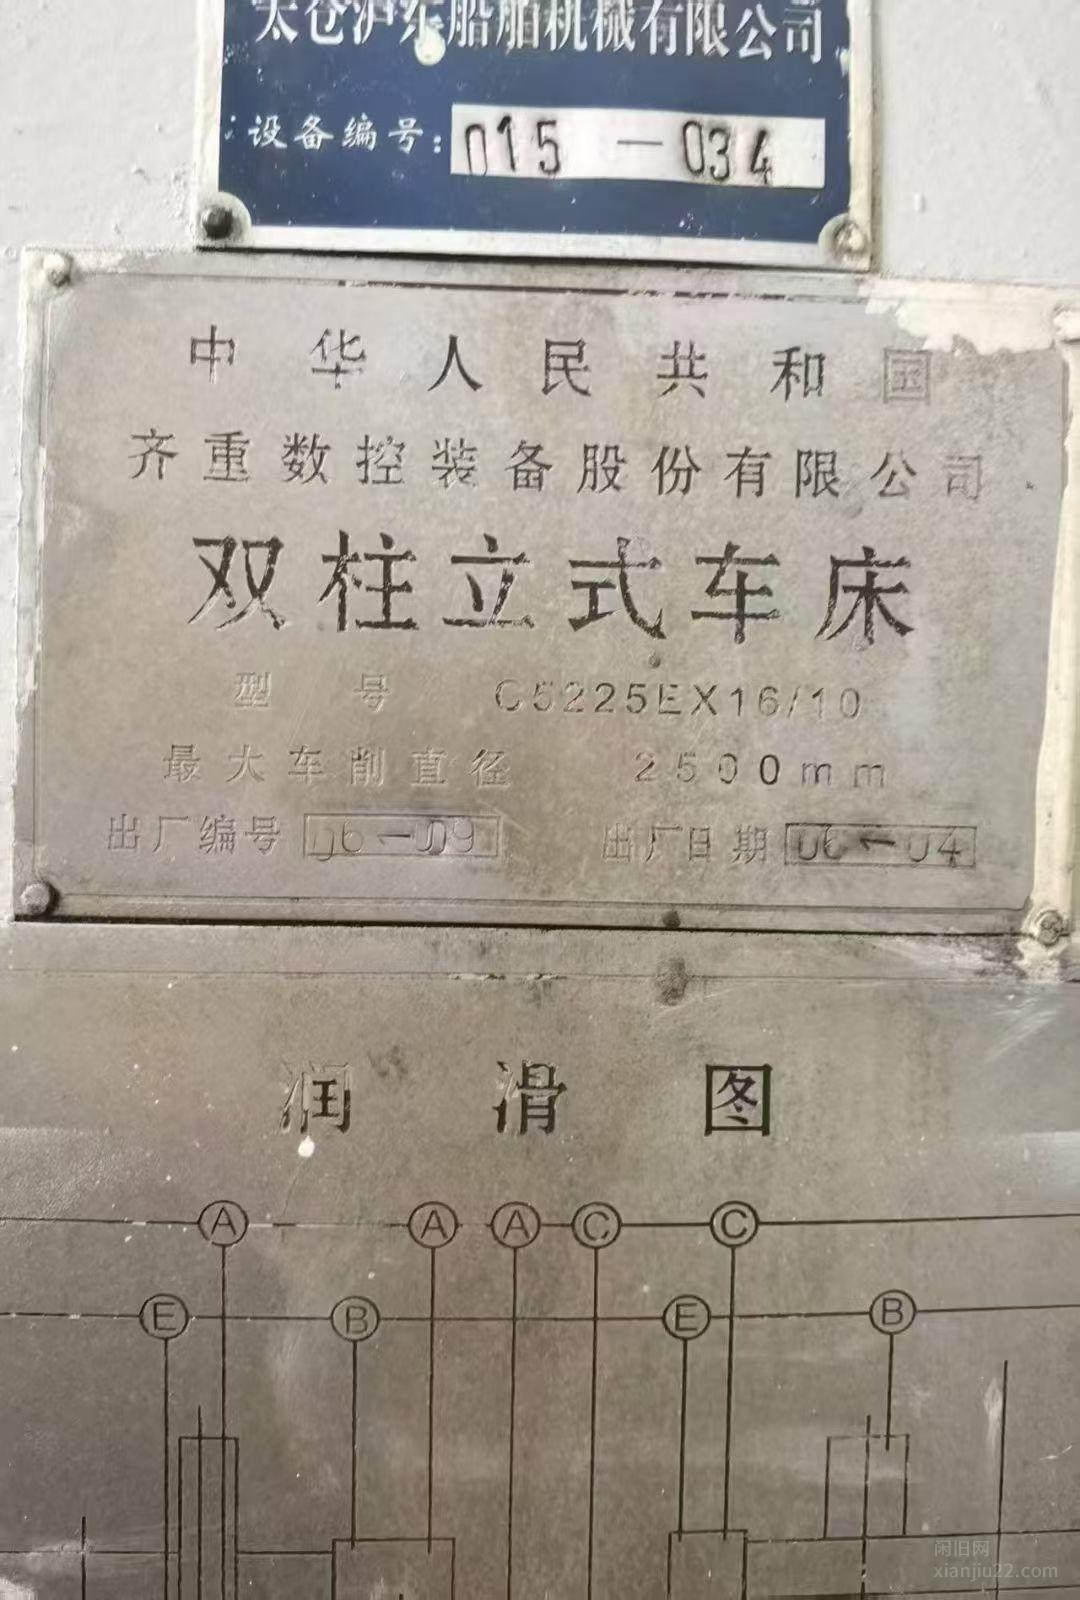 太仓沪东船舶机械有限公司
设备编号：015-034
中华人民共和国
齐重数控装备股份有限公司
双柱立式车床
型号 C5225EX16/10
最大车削直径 2500mm
出厂编号 06-09 出厂日期 06-04
润滑图
A A A C C
E B E B
闲旧网
xianjiu22.com